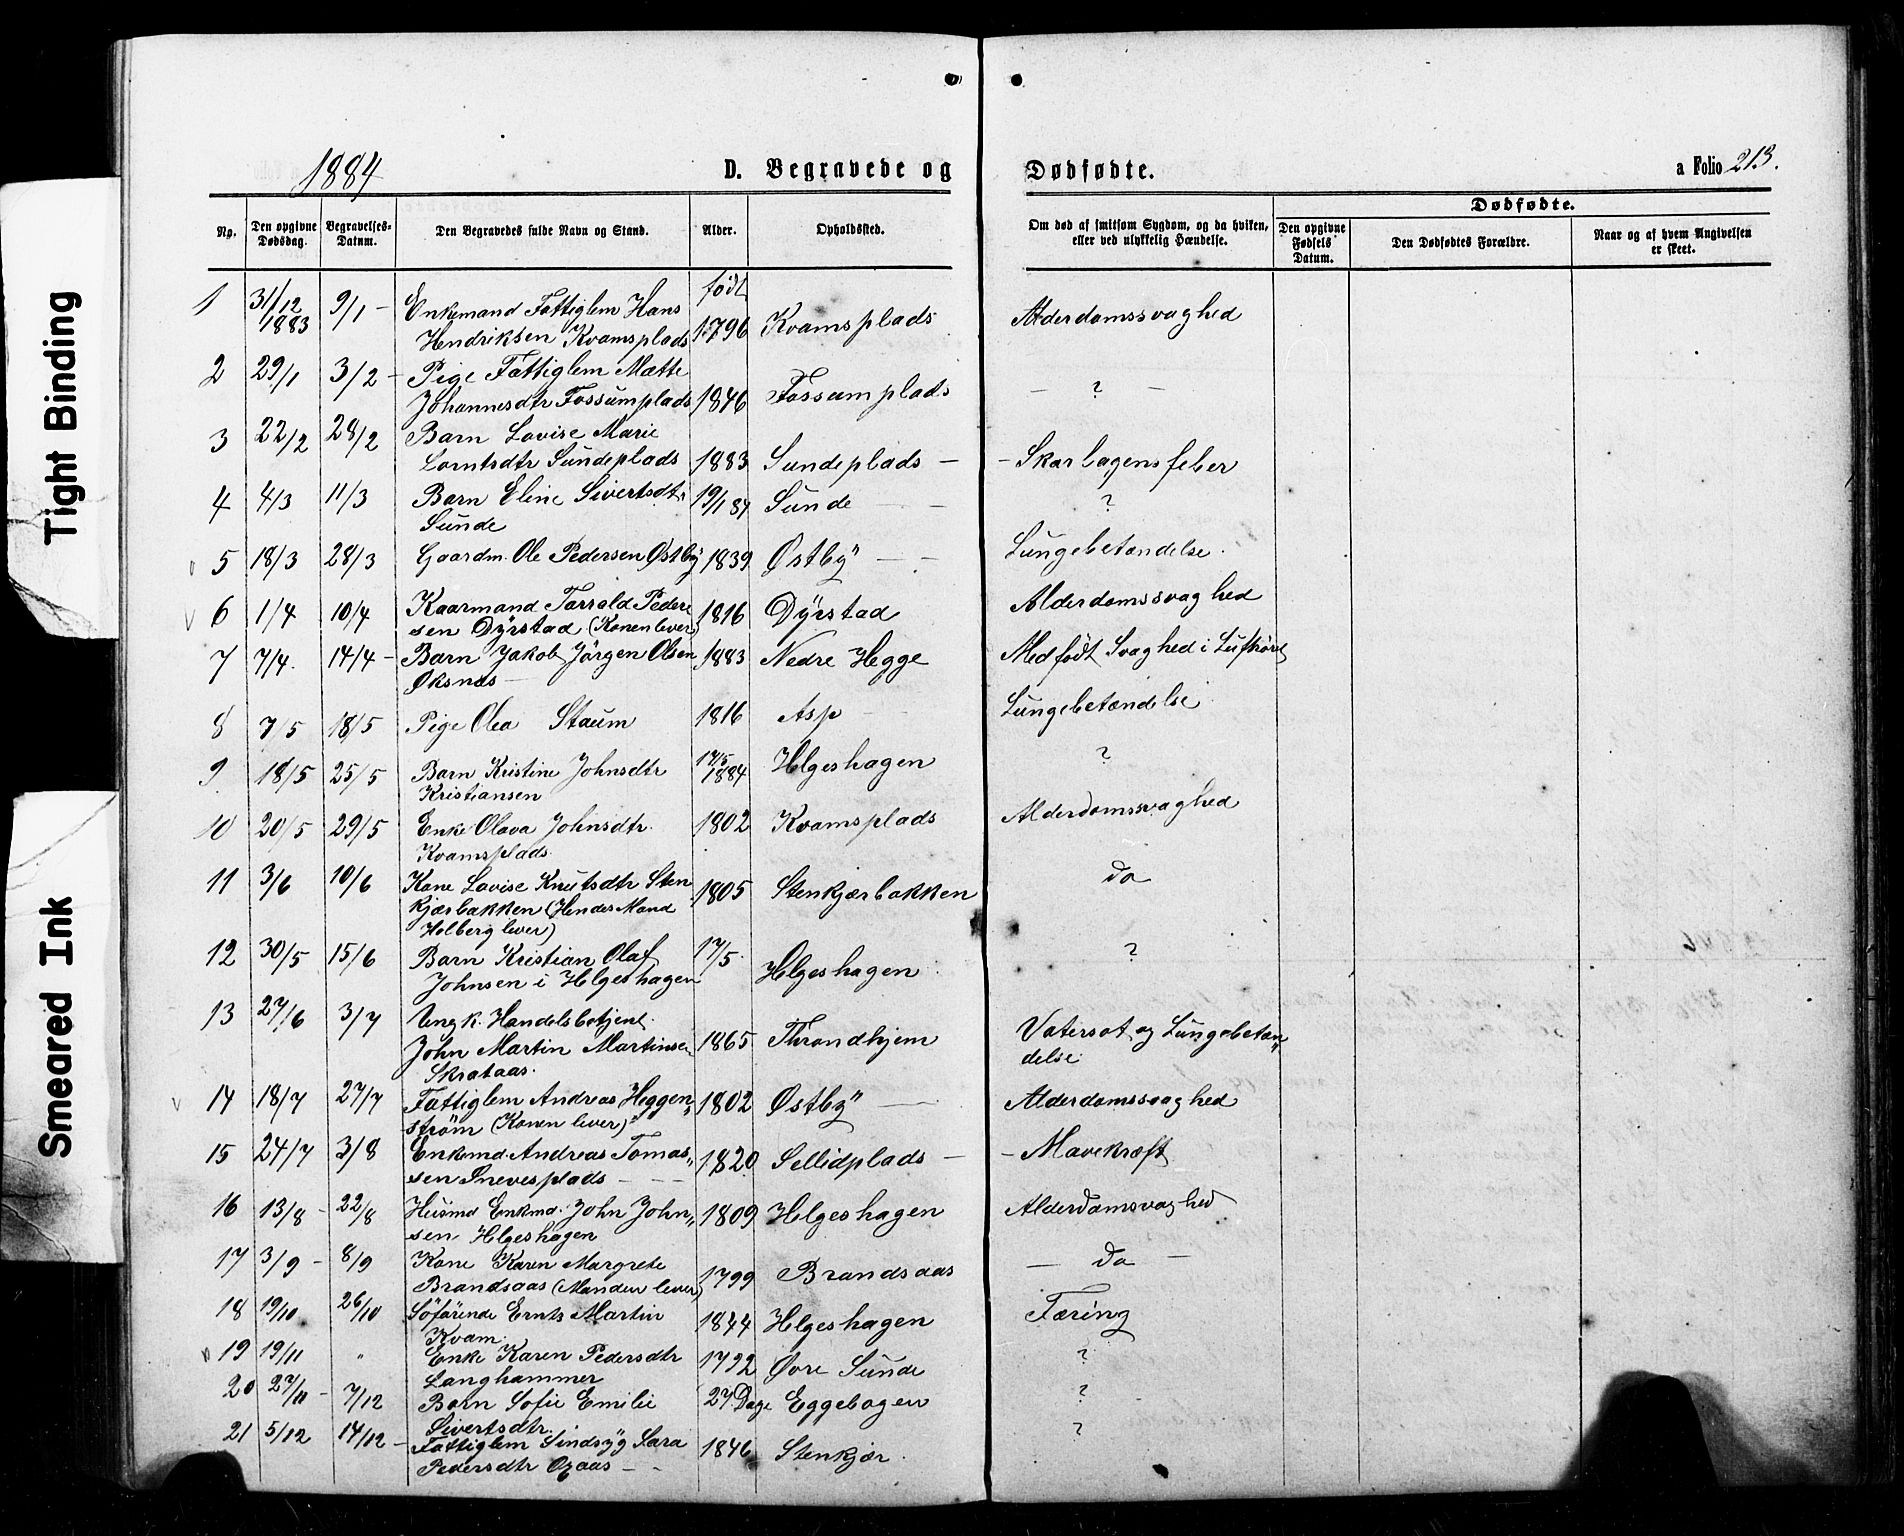 Tight Binding
Smeared Ink
1884
D. Begravede og Dødfødte.
a Folio 213.
No.
Den opgivne Dødsdag.
Begravelses-Datum.
Den Begravedes fulde Navn og Stand.
Alder.
Opholdssted.
Om død af smitsom Sygdom, og da hviken, eller ved ulykkelig Hændelse.
Dødfødte.
Den opgivne Fødsels Datum.
Den Dødfødtes Forældre.
Naar og af hvem Angivelsen er skeet.
1 31/12 1883 9/1 - Enkemand Fattiglem Hans født
Hendriksen Kvamsplads 1796 Kvamsplads Alderdomssvaghed
2 29/1 3/2 - Pige Fattiglem Mætte
Johannesdtr Fossumplads 1846 Fossumplads - ? -
3 22/2 28/2 Barn Lovise Marie
Lorntsdtr Sundeplads 1883 Sundeplads - - Skarlagensfeber
4 4/3 11/3 Barn Eline Sivertsdtr 19/1 84 Sunde - - ?
Sunde
5 18/3 28/3 Gaardm. Ole Pedersen Østby 1839 Østby - - Lungebetændelse.
6 1/4 10/4 Kaarmand Tarrald Peder
sen Dyrstad (Konen lever) 1816 Dyrstad Alderdomssvaghed
7 7/4. 14/4 - Barn Jakob Jörgen Olsen 1883 Nedre Hegge Medfödt Svaghed i Lufrörel
Øksnæs -
8 7/5 18/5 Pige Olea Staum 1816 Asp Lungebetændelse
9 18/5 25/5 Barn Kristine Johnsdtr 17/5 1884 Helgeshagen ?
Kristiansen
10 20/5 29/5 Enke Olava Johnsdtr. 1802 Kvamsplads Alderdomssvaghed
Kvamsplads.
11 3/6 10/6 Kone Lovise Knutsdtr Sten
kjærbakken (Hendes Mand 1805 Stenkjærbakken do
Holberg lever)
12 30/5 15/6 Barn Kristian Olaf 17/5. ?
Johnsen i Helgeshagen Helgeshagen
13 27/6 3/7 Ungk. Handelsbetjent.
John Martin Martinsen 1865 Throndhjem Vatersot og Lungebetæn„
Skrataas. delse
14 18/7 27/7 Fattiglem Andreas Heggen„ 1802 Østby - Alderdomssvaghed
ström (Konen lever)
15 24/7 3/8 Enkemd. Andreas Tomas„ 1820 Sellidplads - - Mavekræft
sen Snevesplads - - -
16 13/8 - 22/8 Husmd Enkmd. John John„ 1809 Helgeshagen Alderdomsvaghed
sen Helgeshagen
17 3/9 - 8/9 Kone Karen Margrete - do -
Brandsaas (Manden lever) 1799 Brandsaas
18 19/10 26/10 Söfarende Ernts Martin 1844 Helgeshagen Tæring
Kvam.
19 19/11 „ Enke Karen Pedersdtr 1792 Øvre Sunde ?
Langhammer
20 27/11 - 7/12 Barn Sofie Emilie 27 Dage Eggebogen ?
Sivertsdtr
21 5/12 14/12 - Fattiglem Sindsyg Sara 1846 Stenkjær. ?
Pedersdtr - -